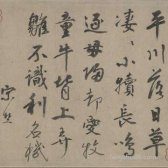 平川落日草
凄〻小犢長鳴
逐母歸却愛牧
童牛背上弄
雛不識利名機